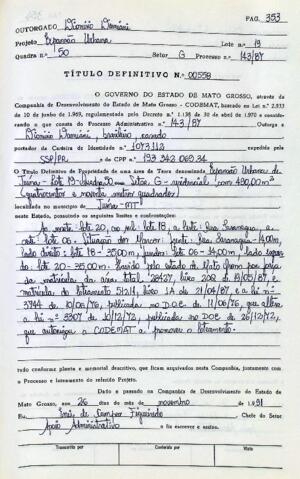 PAG. 353
OUTORGADO Dionísio Damiani
Projeto Expansão Urbana Lote n.º 19
Quadra n.º 50 Setor G Processo n.º 143/87
TÍTULO DEFINITIVO N.º 00558
O GOVERNO DO ESTADO DE MATO GROSSO, através da
Companhia de Desenvolvimento do Estado de Mato Grosso - CODEMAT, baseado na Lei n.º 2.933
de 10 de junho de 1969, regulamentada pelo Decreto n.º 1.138 de 20 de abril de 1970 e considerando
o que consta do Processo Administrativo n.º 143/87 Outorga a
Dionísio Damiani, brasileiro, casado
portador da Carteira de Identidade n.º 1073112
SSP/PR e do CPF n.º 193 342 069 34
O Título Definitivo de Propriedade de uma Área de Terra denominada Expansão Urbana de
Juína - Lote 19 - Quadra 50 - Setor G - residencial com 490,00 m²
(quatrocentos e noventa metros quadrados)
localizada no município de Juína - MT
neste Estado, possuindo os seguintes limites e confrontações:
Ao norte: lote 20, ao sul: lote 18, a leste: Rua
oeste: lote 06. Situação dos Marcos: frente: Rua - 14,00m
lado direito: lote 18 - 35,00m, fundos: lote 06 - 14,00m, lado esquerdo:
lote 20 - 35,00m. Havido pelo Estado de Mato Grosso por
da matrícula da área total 28427, livro 2 de 19/05/87, e
matrícula do loteamento 51214, livro 1A de 21/04/87, e a lei nº
3744 de 10/06/76, publicada no D.O.E. de 11/06/76, que altera
a lei nº 3307 de 10/12/72, publicada no D.O.E. de 26/12/72,
que autoriza a CODEMAT a promover o loteamento.
tudo conforme planta e memorial descritivo, que ficam arquivados nesta Companhia, juntamente com
o Processo e loteamento do referido Projeto.
Dado e passado na Companhia de Desenvolvimento do Estado de
Mato Grosso, aos 26 dias do mês de novembro de 1991
Eu, de Campos Figueiredo Chefe do Setor
Apoio Administrativo o fiz escrever e assino.
Transcrito por Conferido por Visto